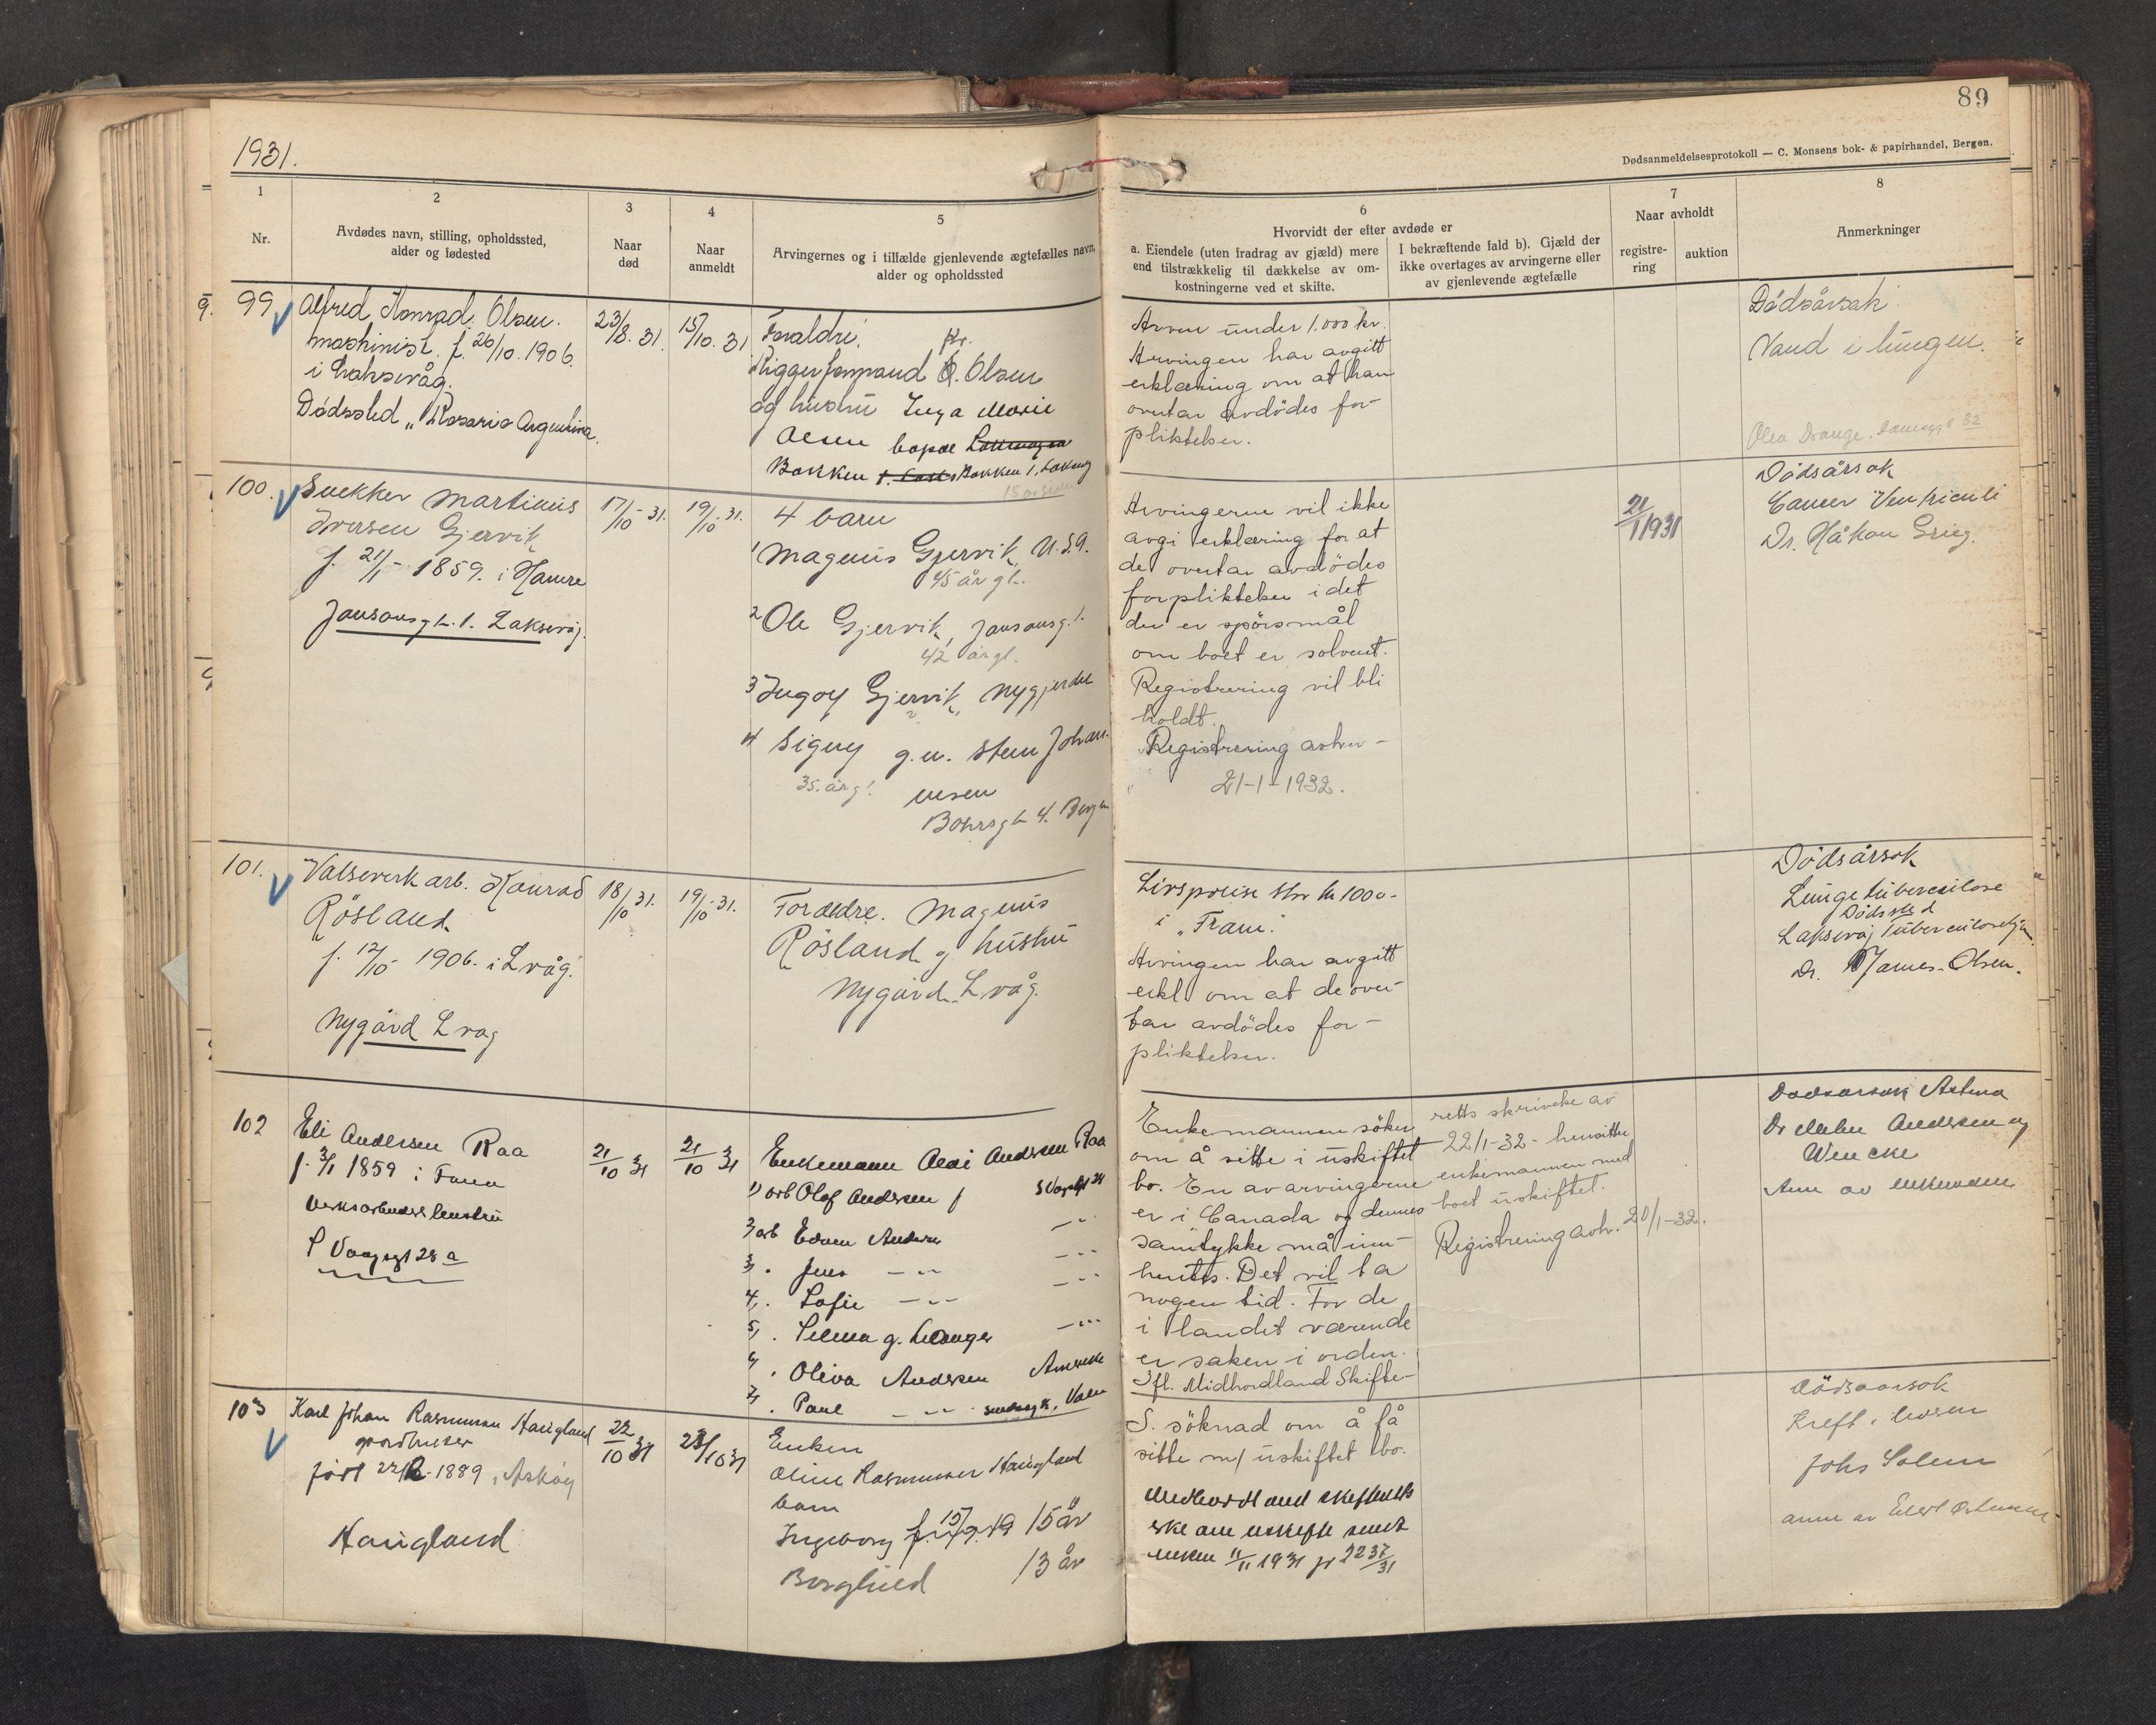 1931.
89
Dødsanmeldelsesprotokoll — C. Monsens bok- & papirhandel, Bergen.
1
Nr.
2
Avdødes navn, stilling, opholdssted,
alder og fødested
3
Naar
død
4
Naar
anmeldt
5
Arvingernes og i tilfælde gjenlevende ægtefælles navn,
alder og opholdssted
6
Hvorvidt der efter avdøde er
a. Eiendele (uten fradrag av gjæld) mere
end tilstrækkelig til dækkelse av om-
kostningerne ved et skifte.
I bekræftende fald b). Gjæld der
ikke overtages av arvingerne eller
av gjenlevende ægtefælle
7
Naar avholdt
registre-
ring
auktion
8
Anmerkninger
99
Alfred Konrad Olsen.
maskinist. f. 26/10. 1906.
i Laksevåg.
Dødssted „Rosario Argentina.
23/8. 31.
15/10. 31
Foreldre.
Kr.
Olsen
og hustru Inga Marie
Olsen
Bakken
Arven under 1.000 kr.
Arvingen har avgitt
erklæring om at han
overtar avdödes for-
pliktelser.
Dödsårsak
Vand i lungen.
100.
Snekker Martinus
Iversen Gjervik
f. 21/1 - 1859. i Hamre
Jansonsgt. 1. Laksevåg.
17/10 - 31.
19/10 - 31.
4 barn
1 Magnus Gjervik, U.S.A.
45 år gl.
2 Ole Gjervik, Jansonsg. 1.
42 år gl.
3 Ingolf Gjervik, Nygjerdet
4 Signy g.m. Sten Johan-
nesen
35 år g.
4. Bergen
Arvingerne vil ikke
avgi erklæring for at
de overtar avdödes
forpliktelser idet
der er spörsmål
om boet er solvent.
Registrering vil bli
holdt.
Registrering avhol-
21-1-1932.
21/1 1931
Dödsårsak
Cancer Ventriculi
Dr. Håkon Grieg.
101.
Valseverk arb. Konrad
Rösland.
f. 12/10 1906. i L.våg.
Nygård L våg
18/10 31.
19/10 - 31.
Foreldre. Magnus
Rösland og hustru
Nygård. L våg.
Livspolise stor kr 1000-
i „Fram".
Arvingen har avgitt
erkl. om at de over-
tar avdödes for-
pliktelser.
Dödsårsak
Lungetuberculose
Dödssted
Laksevåg
Dr. James-Olsen.
102
Eli Andersen Raa
f. 3/1 1859 i Fana
Verksarbeiders hustru
28 a
21/10 31
21/10 31
Enkemann Andersen Raa
1) arb Olaf Andersen
2) arb Andersen
3, . Jens — " —
4, . Sofie — " —
5, . Selma g.
6, . Oliva Andersen Amerika
7, . Paul — " —
Enkemannen söker
om å sitte i uskiftet
bo. En av arvingerne
er i Canada og dennes
samtykke må inn-
hentes. Det vil ta
nogen tid. For de
i landet værende
er saken i orden.
Ifl. Midhordland Skifte-
retts skrivelse av
22/1-32 - hensitter
enkemannen med
boet uskiftet.
Registrering avh. 20/1-32.
Dødsårsak Astma
Andersen og
Wencke
103
Karl Johan Rasmussen Haugland
gårdbruker
født 22/12 - 1889 i Askøy
Haugland
22/10 31
23/10 31
Enken
Oline Rasmussen Haugland
barn
Ingeborg 15 år
Borghild 13 år
S. söknad om å få
sitte m/ uskiftet bo.
Midhordland skifteretts
11/11 1931 jr 2237/31
Dödsaarsak
Kreft